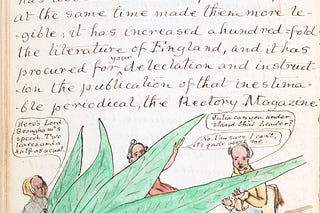 at the same time made them more le-
gible; it has increased a hundred-fold
the literature of England, and it has
procured for your delectation and instruct-
ion the publication of that inestima-
ble periodical, the Rectory Magazine
Here's Lord
Brougham's
speech. Two
leaves and a
half as usual.
Julia can you under-
stand this Leader?
No, I'm sure I can't,
it's quite